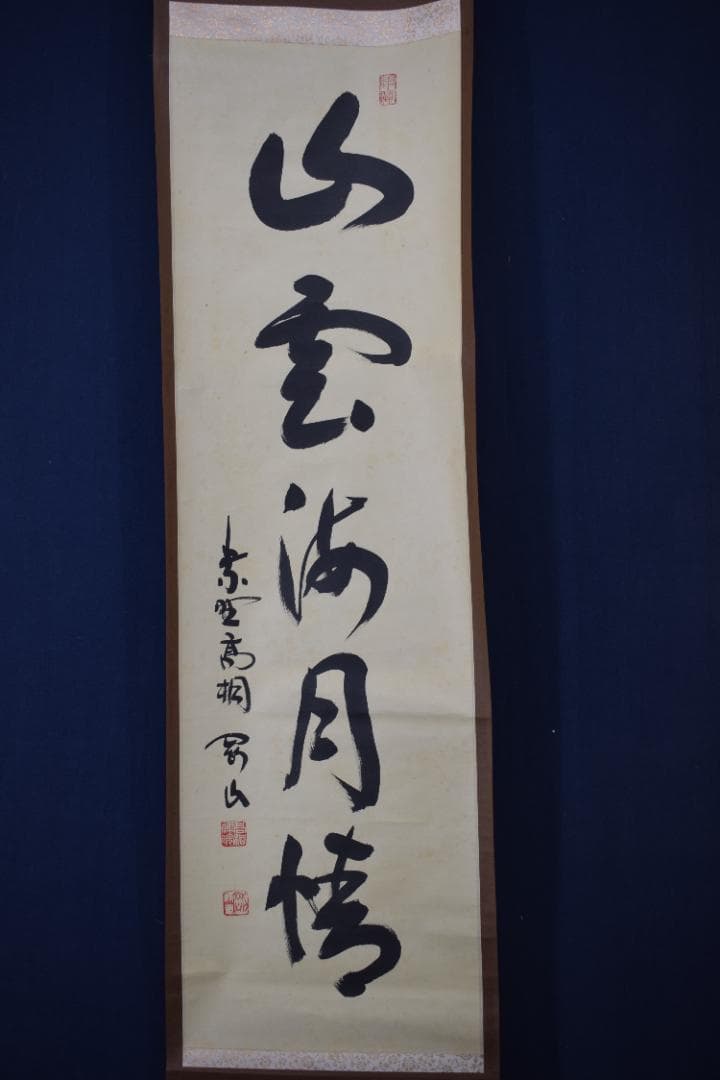 山雲海月情
紫野高桐 剛山